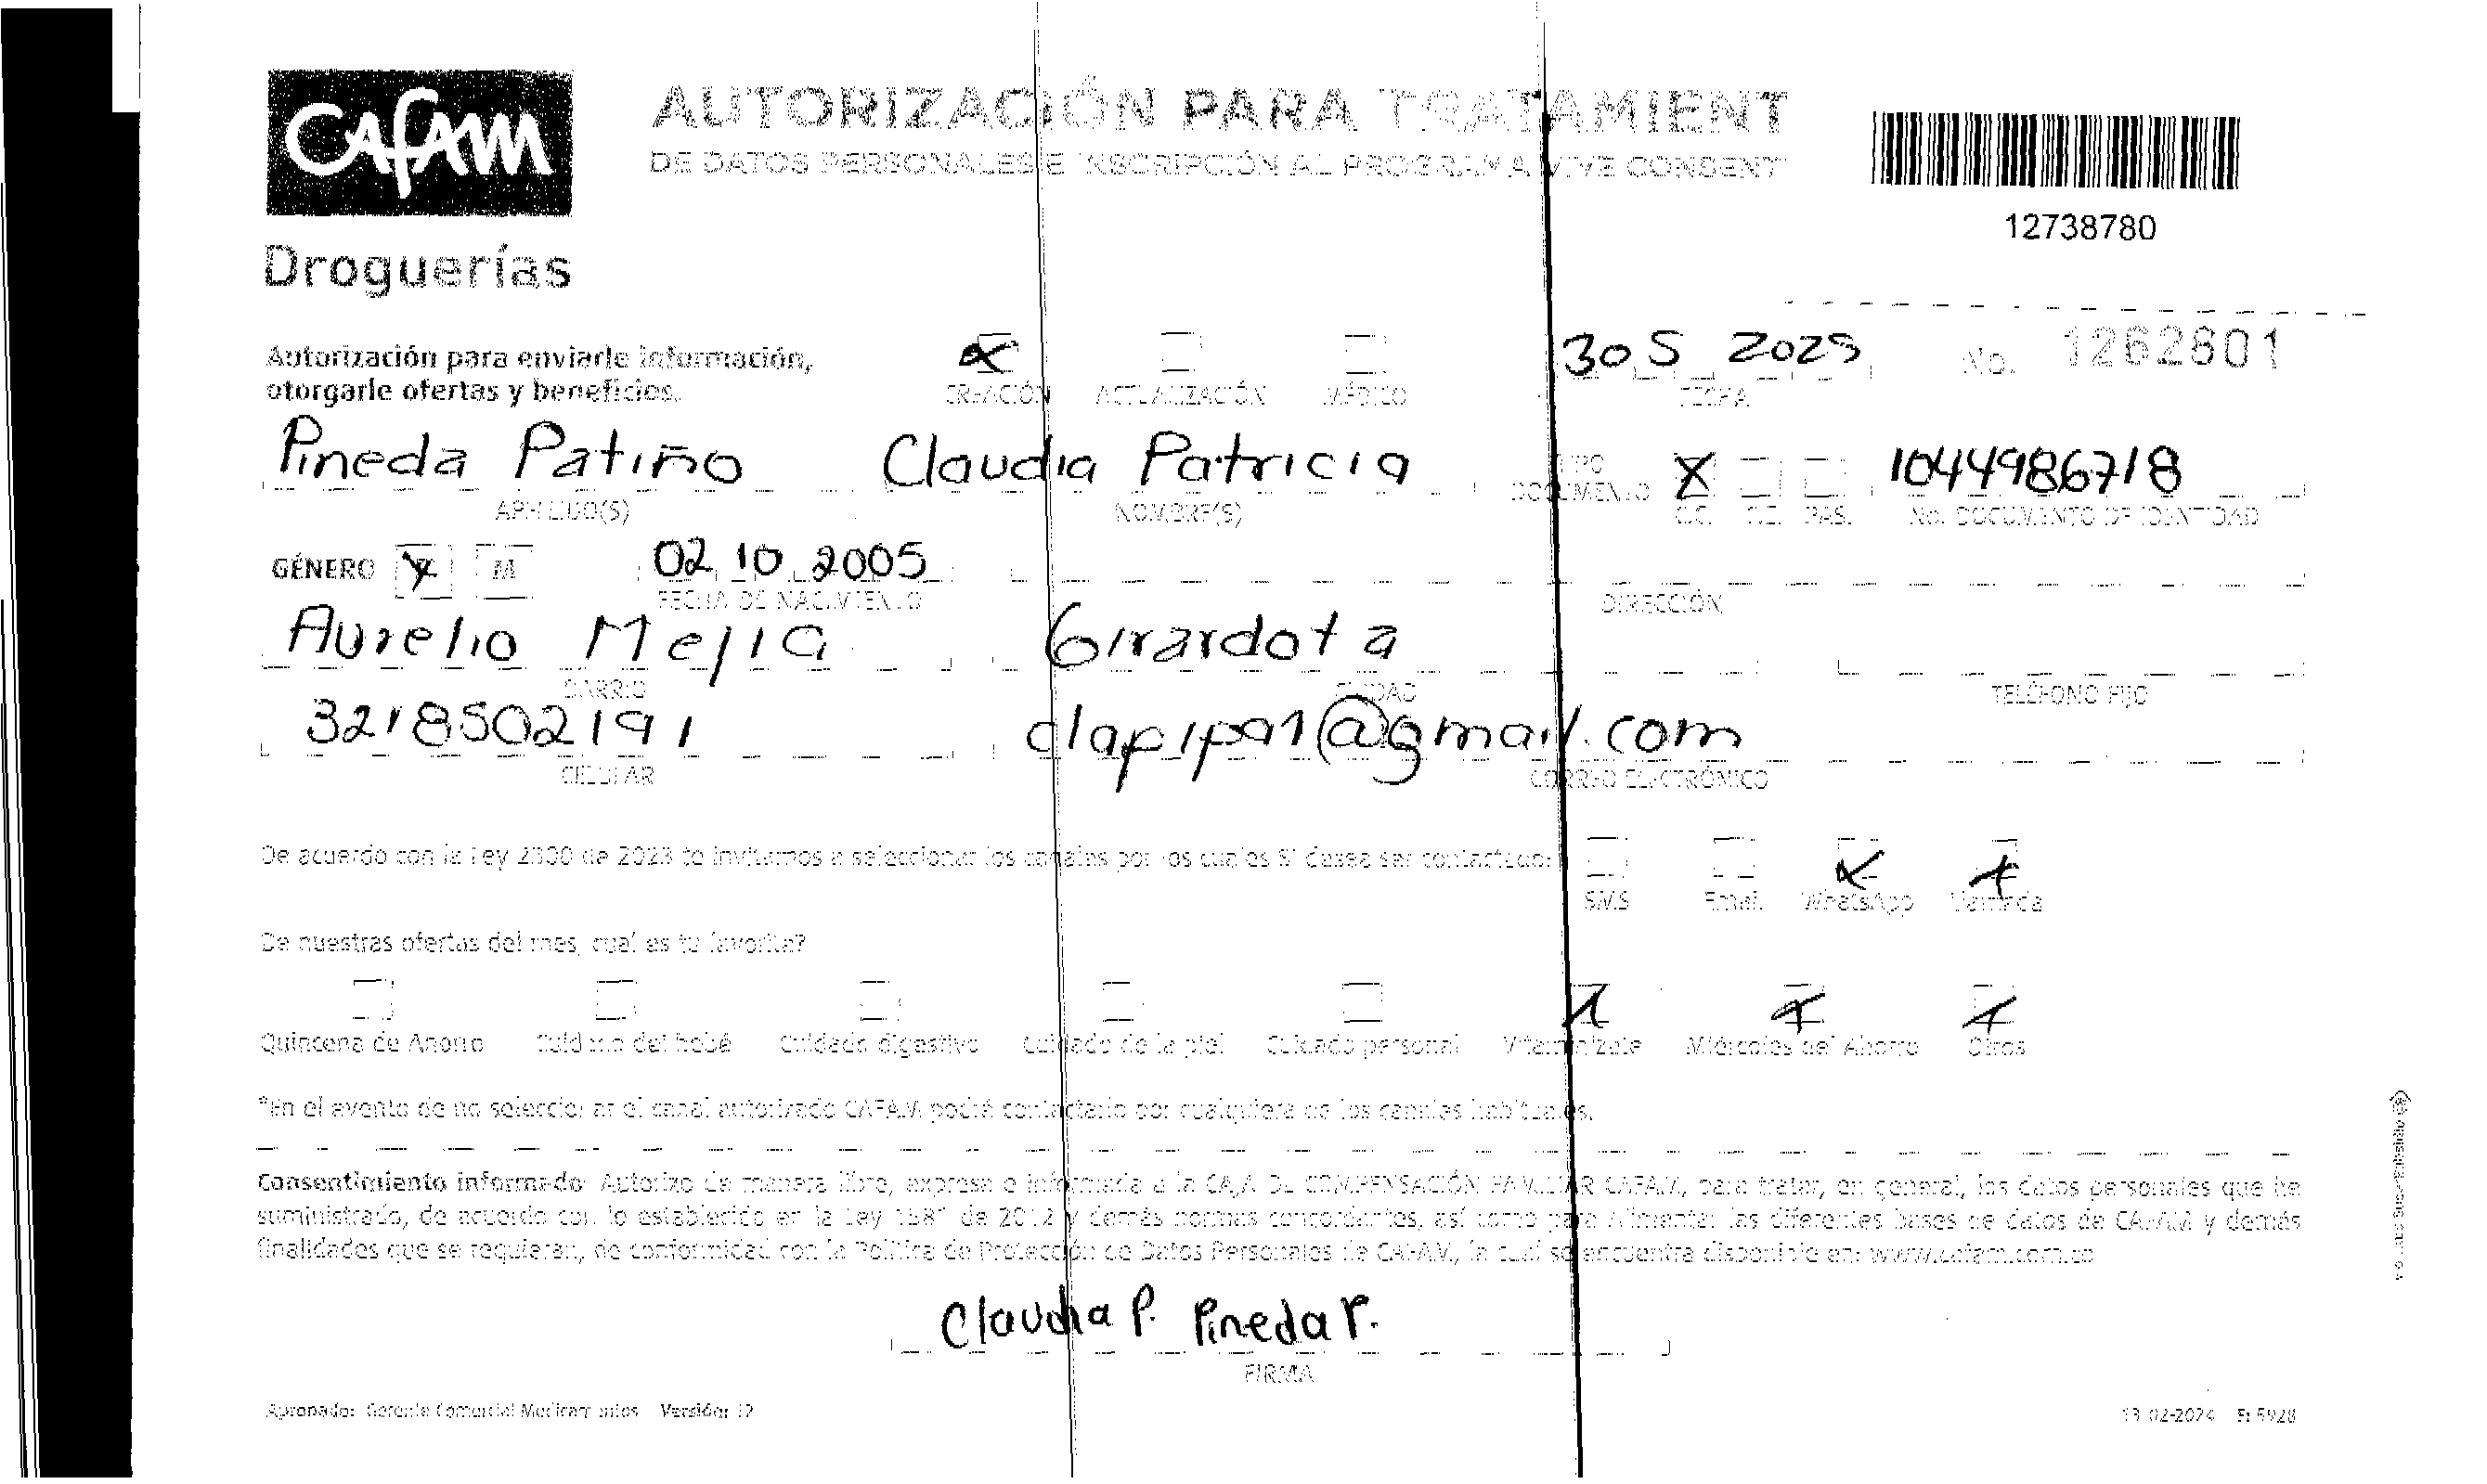 Cafam
Droguerías
AUTORIZACIÓN PARA TRATAMIENT
DE DATOS PERSONALES E INSCRIPCIÓN AL PROGRAMA VIVE CONSENT
12738780
Autorización para enviarle información,
otorgarle ofertas y beneficios.
CREACIÓN ACTUALIZACIÓN MÉDICO
30 5 2025
FECHA
No. 1262801
Pineda Patiño Claudia Patricia
APELLIDO(S) NOMBRE(S)
TIPO DOCUMENTO
C.C. C.E. PAS.
1044986718
No. DOCUMENTO DE IDENTIDAD
GÉNERO F M 02 10 2005
FECHA DE NACIMIENTO DIRECCIÓN
Aurelio Mejia Girardota
BARRIO CIUDAD TELÉFONO FIJO
3218502191 clapip91@gmail.com
CELULAR CORREO ELECTRÓNICO
De acuerdo con la Ley 2300 de 2023 te invitamos a seleccionar los canales por los cuales SI desea ser contactado:
SMS Email WhatsApp Llamada
De nuestras ofertas del mes, cual es tu favorita?
Quincena de Ahorro Cuidado del bebé Cuidado digestivo Cuidado de la piel Cuidado personal Vitaminízate Miércoles del Ahorro Otros
*En el evento de no seleccionar el canal autorizado CAFAM podrá contactarlo por cualquiera de los canales habituales.
Consentimiento informado: Autorizo de manera libre, expresa e informada a la CAJA DE COMPENSACIÓN FAMILIAR CAFAM, para tratar, en general, los datos personales que he
suministrado, de acuerdo con lo establecido en la Ley 1581 de 2012 y demás normas concordantes, así como para alimentar las diferentes bases de datos de CAFAM y demás
finalidades que se requieran, de conformidad con la Política de Protección de Datos Personales de CAFAM, la cual se encuentra disponible en: www.cafam.com.co
Claudia P. Pineda P.
FIRMA
Aprobado: Gerente Comercial Medicamentos Versión: 12
13-02-2024 F: 5928